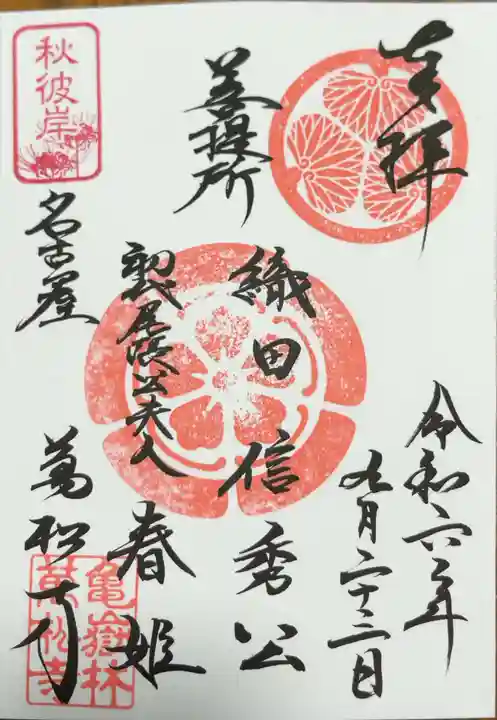 奉拝
令和六年
九月二十三日
菩提所
織田信秀公
初代尾張公夫人
春姫
名古屋
萬松寺
秋彼岸
亀嶽林
萬松寺